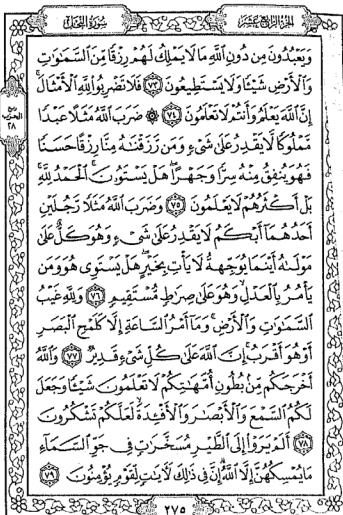 الجزء الرابع عشر
سورة النحل
وَيَعْبُدُونَ مِن دُونِ ٱللَّهِ مَا لَا يَمْلِكُ لَهُمْ رِزْقًا مِّنَ ٱلسَّمَٰوَٰتِ
وَٱلْأَرْضِ شَيْـًٔا وَلَا يَسْتَطِيعُونَ ٧٣ فَلَا تَضْرِبُوا۟ لِلَّهِ ٱلْأَمْثَالَ
إِنَّ ٱللَّهَ يَعْلَمُ وَأَنتُمْ لَا تَعْلَمُونَ ٧٤ ۞ ضَرَبَ ٱللَّهُ مَثَلًا عَبْدًا
مَّمْلُوكًا لَّا يَقْدِرُ عَلَىٰ شَىْءٍ وَمَن رَّزَقْنَٰهُ مِنَّا رِزْقًا حَسَنًا
فَهُوَ يُنفِقُ مِنْهُ سِرًّا وَجَهْرًا هَلْ يَسْتَوُۥنَ ٱلْحَمْدُ لِلَّهِ
بَلْ أَكْثَرُهُمْ لَا يَعْلَمُونَ ٧٥ وَضَرَبَ ٱللَّهُ مَثَلًا رَّجُلَيْنِ
أَحَدُهُمَآ أَبْكَمُ لَا يَقْدِرُ عَلَىٰ شَىْءٍ وَهُوَ كَلٌّ عَلَىٰ
مَوْلَىٰهُ أَيْنَمَا يُوَجِّههُّ لَا يَأْتِ بِخَيْرٍ هَلْ يَسْتَوِى هُوَ وَمَن
يَأْمُرُ بِٱلْعَدْلِ وَهُوَ عَلَىٰ صِرَٰطٍ مُّسْتَقِيمٍ ٧٦ وَلِلَّهِ غَيْبُ
ٱلسَّمَٰوَٰتِ وَٱلْأَرْضِ وَمَآ أَمْرُ ٱلسَّاعَةِ إِلَّا كَلَمْحِ ٱلْبَصَرِ
أَوْ هُوَ أَقْرَبُ إِنَّ ٱللَّهَ عَلَىٰ كُلِّ شَىْءٍ قَدِيرٌ ٧٧ وَٱللَّهُ
أَخْرَجَكُم مِّنۢ بُطُونِ أُمَّهَٰتِكُمْ لَا تَعْلَمُونَ شَيْـًٔا وَجَعَلَ
لَكُمُ ٱلسَّمْعَ وَٱلْأَبْصَٰرَ وَٱلْأَفْـِٔدَةَ لَعَلَّكُمْ تَشْكُرُونَ
٧٨ أَلَمْ يَرَوْا۟ إِلَى ٱلطَّيْرِ مُسَخَّرَٰتٍ فِى جَوِّ ٱلسَّمَآءِ
مَا يُمْسِكُهُنَّ إِلَّا ٱللَّهُ إِنَّ فِى ذَٰلِكَ لَءَايَٰتٍ لِّقَوْمٍ يُؤْمِنُونَ ٧٩
ربع
الحزب
٢٨
٢٧٥